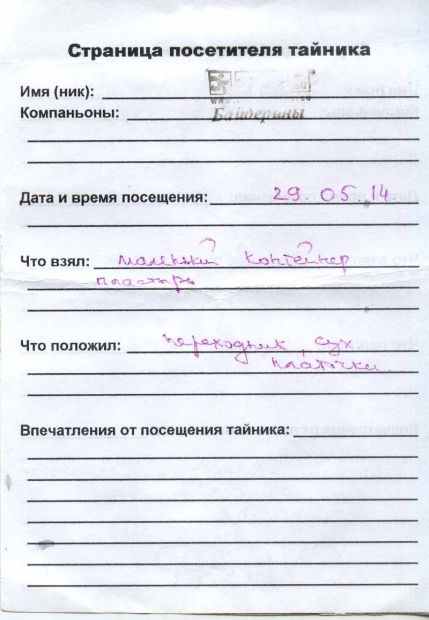 Страница посетителя тайника
Имя (ник):
Компаньоны: Байдерины
Дата и время посещения: 29.05.14.
Что взял: маленький контейнер
пластырь
Что положил: переходник, сух
платочки.
Впечатления от посещения тайника: